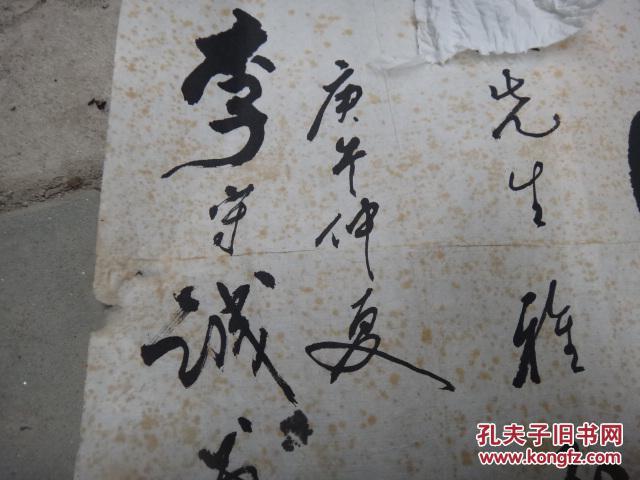 先生雅
庚午仲夏
李守诚
孔夫子旧书网
www.kongfz.com